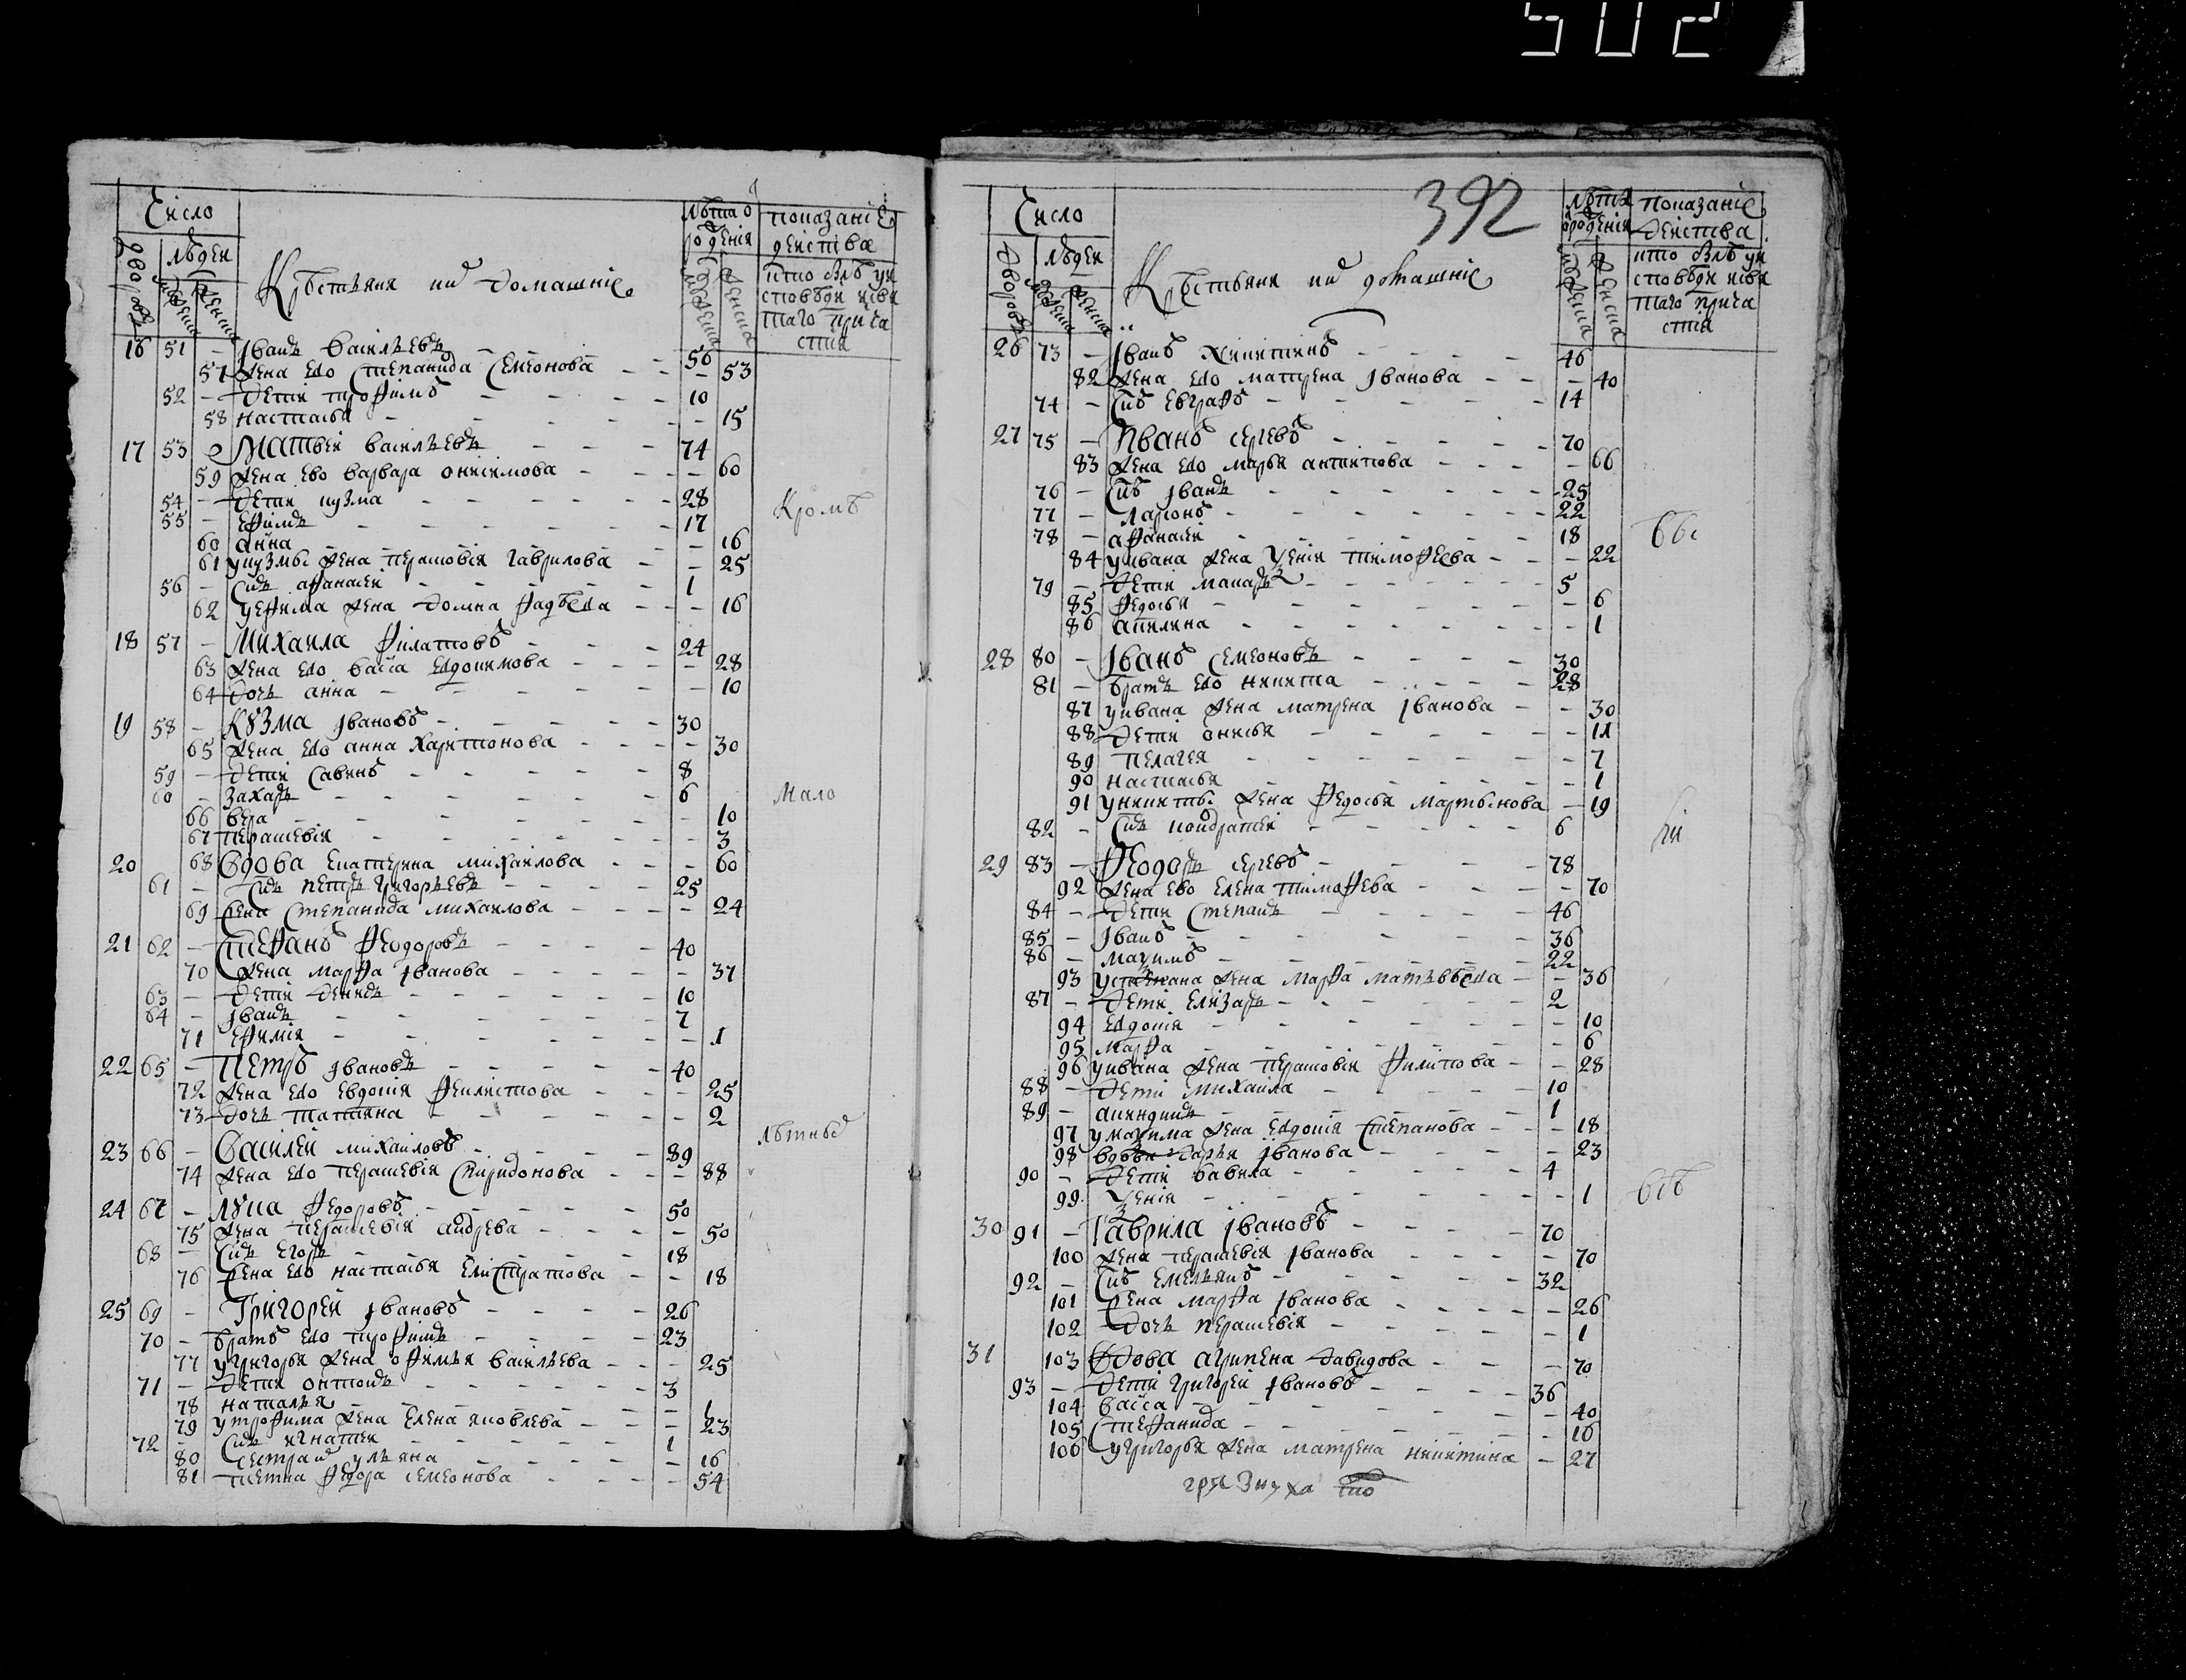 502
Число
Дворовъ
Людей
Мужеска
Женска
Крестьяня и ихъ домашніе
Лѣта о
рожденія
Мужеска
Женска
Показаніе
действа
кто былъ у и
споведи и свя
таго прича
стия
16 51 – Іванъ васильевъ – – 56
57 жена ево Степанида Семеонова – – – 53
52 – дети трофимъ – – – – 10
58 настасья – – – – – 15
17 53 – Матвеи васильевъ – – – 74
59 жена ево варвара онисимова – – – – 60
54 – дети кузма – – – – – 28
55 – ефимъ – – – – – – 17
60 анна – – – – – – – 16
61 у кузмы жена перасковія гаврилова – – 25
56 – Сынъ афанасеи – – – – – 1
62 у ефима жена домна фадѣева – – – 16
Кромѣ
18 57 – Михаила филатовъ – – – 24
63 жена ево васса евдокимова – – – – 28
64 дочь анна – – – – – – – 10
19 58 – Кузма Івановъ – – – – – 30
65 жена ево анна харитонова – – – – 30
59 – дети Савинъ – – – – – 8
60 – захаръ – – – – – – 6
66 вера – – – – – – – 10
67 перасковія – – – – – – 3
Мало
20 68 Вдова екатерина михаилова – – – 60
61 – Сынъ петръ григорьевъ – – – – 25
69 жена Степанида михаилова – – – – 24
21 62 – Стефанъ феодоровъ – – – – 40
70 жена марфа Іванова – – – – – 37
63 – дети денисъ – – – – – 10
64 – Іванъ – – – – – – 7
71 ефимія – – – – – – – 1
22 65 – Петръ Івановъ – – – – – 40
72 жена ево евдокія феилистова – – – 25
73 дочь татіяна – – – – – – 2
лѣтныхъ
23 66 – Василеи михаиловъ – – – – 89
74 жена ево перасковія Спиридонова – – – 88
24 67 – Лука федоровъ – – – – – 50
75 жена перасковія андрева – – – – 50
68 – Сынъ егоръ – – – – – – 18
76 жена ево настасья елистратова – – 18
25 69 – Григореи Івановъ – – – – 26
70 – братъ ево трофимъ – – – – 23
77 у григорья жена офимья васильева – – – 25
71 – дети антонъ – – – – – – 3
78 наталья – – – – – – 1
79 у трофима жена елена яковлева – – – 23
72 – Сынъ игнатеи – – – – – 1
80 сестра ихъ ульяна – – – – – 16
81 тетка федора семеонова – – – – 54
392
Число
Дворовъ
Людей
Мужеска
Женска
Крестьяня и ихъ домашніе
Лѣта
о рожденія
Мужеска
Женска
Показаніе
действа
кто былъ у и
споведи и свя
таго прича
стия
26 73 – Іванъ никитинъ – – – – 46
82 жена ево матрена Іванова – – – 40
74 – Сынъ евграфъ – – – – – – 14
27 75 – Иванъ сергевъ – – – – – 70
83 жена ево марья антипова – – – – 66
76 – Сынъ Іванъ – – – – – – – 25
77 – Ларіонъ – – – – – – – 22
78 – афанасеи – – – – – – 18
84 у ивана жена ксенія тимофеева – – – 22
79 – дети макаръ – – – – – – 5
85 федосья – – – – – – – 6
86 акилина – – – – – – – 1
28 80 – Іванъ семеоновъ – – – – 30
81 – братъ ево никита – – – – 28
87 у ивана жена матрена Іванова – – 30
88 дети онисья – – – – – – 11
89 пелагея – – – – – – 7
90 настасья – – – – – – 1
91 у никиты жена федосья мартынова – 19
82 – Сынъ кондратеи – – – – 6
29 83 – Феодоръ сергевъ – – – – 78
92 жена ево елена тимофева – – – – 70
84 – дети Степанъ – – – – – 46
85 – Іванъ – – – – – – 36
86 – маѯимъ – – – – – – 22
93 у степана жена марфа матьвѣева – – 36
87 – дети елизаръ – – – – – 2
94 евдокія – – – – – – – 10
95 марфа – – – – – – – 6
96 у ивана жена перасковія филипова – – 28
88 – дети михаила – – – – – 10
89 – акиндинъ – – – – – – 1
97 у маѯима жена евдокія степанова – – – 18
98 вдова дарья Іванова – – – – – 23
90 – дети вавила – – – – – – 4
99 ксенія – – – – – – – 1
30 91 – Гаврила Івановъ – – – – 70
100 жена перасковія Іванова – – – – – 70
92 – Сынъ емельянъ – – – – – – 32
101 жена марфа Іванова – – – – – 26
102 дочь перасковія – – – – – – 1
31 103 Вдова агрипена давидова – – – 70
93 – дети григореи Івановъ – – – – 36
104 васса – – – – – – – – 40
105 Стефанида – – – – – – – 16
106 у григорья жена матрена никитина – 27